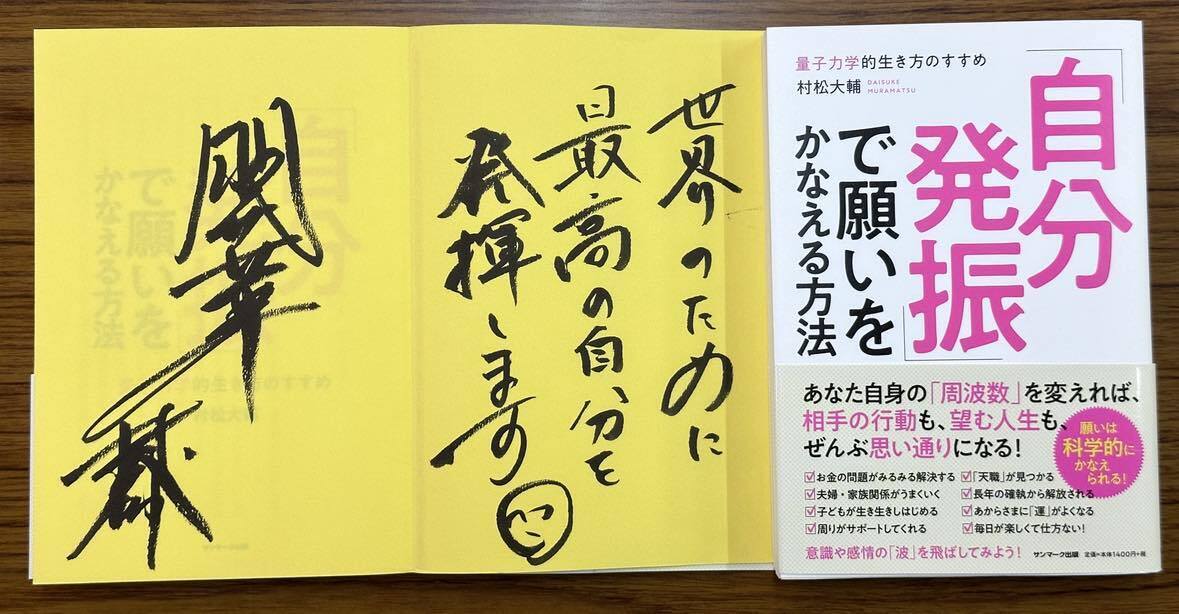 量子力学的生き方のすすめ
村松大輔
DAISUKE
MURAMATSU
「自分
発振」
で願いを
かなえる方法
あなた自身の「周波数」を変えれば、
相手の行動も、望む人生も、
ぜんぶ思い通りになる!
願いは
科学的に
かなえ
られる!
☑お金の問題がみるみる解決する
☑夫婦・家族関係がうまくいく
☑子どもが生き生きしはじめる
☑周りがサポートしてくれる
☑「天職」が見つかる
☑長年の確執から解放される
☑あからさまに「運」がよくなる
☑毎日が楽しくて仕方ない!
意識や感情の「波」を飛ばしてみよう!
サンマーク出版 定価=本体1400円+税
世界のために
最高の自分を
発揮します
開華